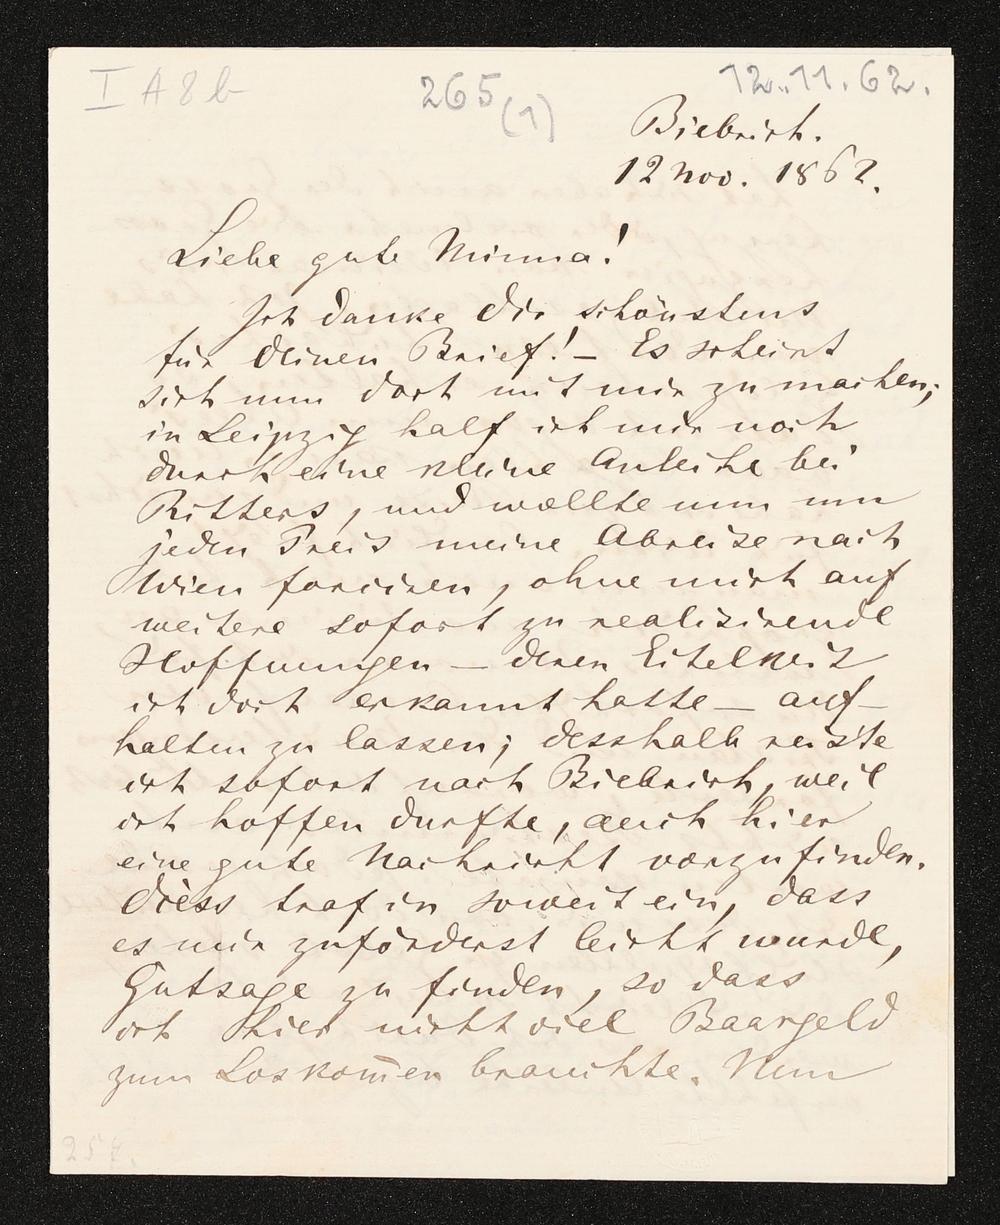 I A 8 b
265 (1)
12.11.62.
Biebrich.
12 Nov. 1862.
Liebe gute Minna!
Ich danke Dir schönstens
für Deinen Brief! – Es scheint
sich nun dort mit mir zu machen;
in Leipzig half ich mir noch
durch eine kleine Anleihe bei
Ritters, und wollte nun um
jeden Preis meine Abreise nach
Wien forciren, ohne mich auf
weitere sofort zu realisirende
Hoffnungen – deren Eitelkeit
ich dort erkannt hatte – auf-
halten zu lassen; desshalb reis'te
ich sofort nach Biebrich, weil
ich hoffen durfte, auch hier
eine gute Nachricht vorzufinden.
Diess traf in soweit ein, dass
es mir zuförderst leicht wurde,
Gutsage zu finden, so dass
ich hier nicht viel Baargeld
zum Loskom̄en brauchte. Nun